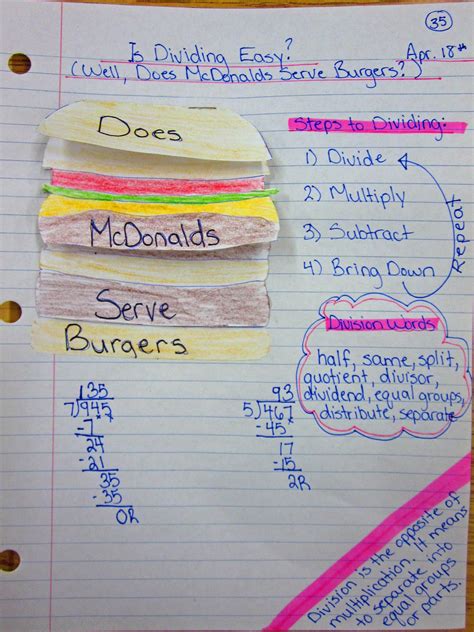 35
Is Dividing Easy?
Apr. 18th
(Well, Does McDonalds Serve Burgers?)
Does
McDonalds
Serve
Burgers
Steps to Dividing:
1) Divide
2) Multiply
3) Subtract
4) Bring Down
Repeat
Division Words
half, same, split,
quotient, divisor,
dividend, equal groups,
distribute, separate
135
7)945
-7
24
-21
35
-35
0R
93
5)467
-45
17
-15
2R
Division is the opposite of
multiplication. It means
to separate into
equal groups
or parts.